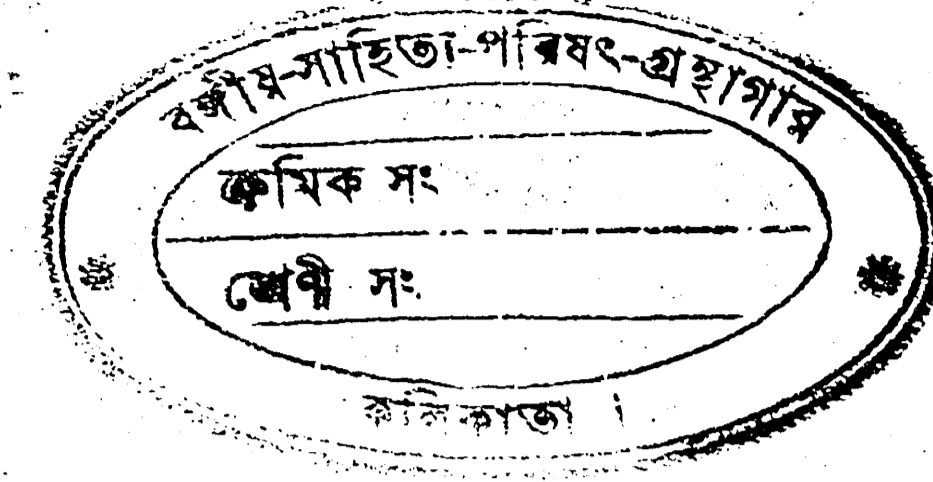 বঙ্গীয়-সাহিত্য-পরিষৎ-গ্রন্থাগার
ক্রমিক সং
শ্রেণী সং
কলিকাতা ।